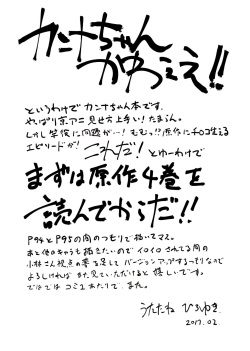 カンナちゃん
かわうええ!!
というわけでカンナちゃん本です。
やっぱり京アニ見せ方上手い!たまらん。
しかし学校に問題が…!ももっ!?原作にチョロ生える
エピソードが! これだ! とゆーわけで
まずは原作4巻を
読んでからだ!!
P94とP95の間のつもりで描いてマス。
あと他のキャラも描きたいので イロイロ されてる間の
小林さん視点の夢を足して バージョンアップするつもりなので
よろしければ また見ていただけると 嬉しいでーす。
ではでは コミ1あたりで、また。
うたたね ひろゆき
2017.02.